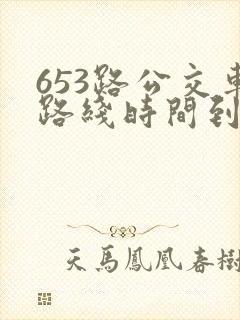 653路公交車
路綫時間到
天馬鳳凰春樹